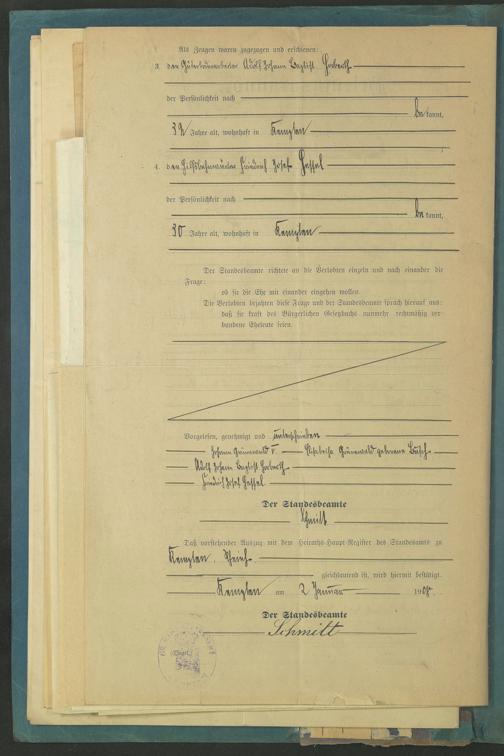 Als Zeugen waren zugezogen und erschienen:
3. den Güterbahnarbeiter Adolf Johann Baptist Herberth
der Persönlichkeit nach
be kannt,
32 Jahre alt, wohnhaft in Kempten
4. den Hilfsbahnwärter Friedrich Josef Hessel
der Persönlichkeit nach
be kannt,
30 Jahre alt, wohnhaft in Kempten
Der Standesbeamte richtete an die Verlobten einzeln und nach einander die
Frage:
ob sie die Ehe mit einander eingehen wollen.
Die Verlobten bejahten diese Frage und der Standesbeamte sprach hierauf aus:
daß sie kraft des Bürgerlichen Gesetzbuchs nunmehr rechtmäßig ver-
bundene Eheleute seien.
Vorgelesen, genehmigt und unterschrieben
Johann Grünewald V. Elisabetha Grünewald geborene Busch
Adolf Johann Baptist Herberth
Friedrich Josef Hessel
Der Standesbeamte
Schmitt
Daß vorstehender Auszug mit dem Heiraths-Haupt-Register des Standesamts zu
Kempten, Rhein
gleichlautend ist, wird hiermit bestätigt.
Kempten am 2 Januar 190
Der Standesbeamte
Schmitt
(Siegel.)